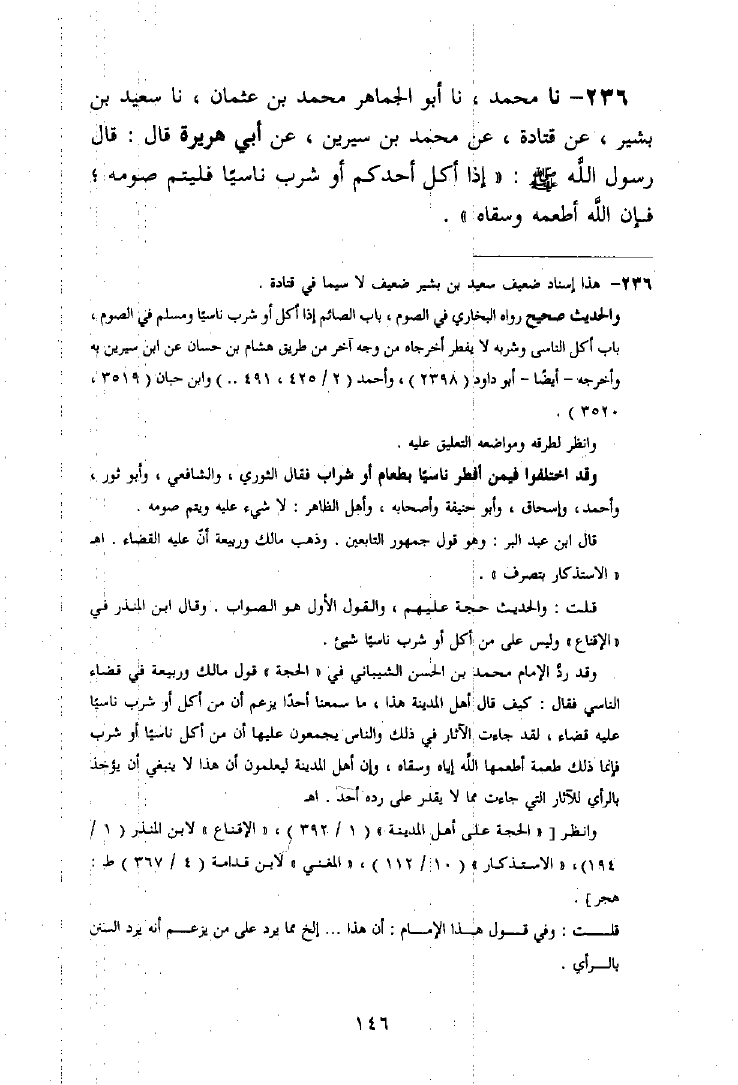 ٢٣٦- نا محمد ، نا أبو الجماهر محمد بن عثمان ، نا سعيد بن
بشير ، عن قتادة ، عن محمد بن سيرين ، عن أبي هريرة قال : قال
رسول اللَّه ﷺ : « إذا أكل أحدكم أو شرب ناسيًا فليتم صومه ؛
فإن اللَّه أطعمه وسقاه » .
٢٣٦- هذا إسناد ضعيف سعيد بن بشير ضعيف لا سيما في قتادة .
والحديث صحيح رواه البخاري في الصوم ، باب الصائم إذا أكل أو شرب ناسيًا ومسلم في الصوم ،
باب أكل الناسى وشربه لا يفطر أخرجاه من وجه آخر من طريق هشام بن حسان عن ابن سيرين به
وأخرجه - أيضًا - أبو داود ( ٢٣٩٨ ) ، وأحمد ( ٢ / ٤٢٥ ، ٤٩١ .. ) وابن حبان ( ٣٥١٩ ،
٣٥٢٠ ) .
وانظر لطرقه ومواضعه التعليق عليه .
وقد اختلفوا فيمن أفطر ناسيًا بطعام أو شراب فقال الثوري ، والشافعي ، وأبو ثور ،
وأحمد ، وإسحاق ، وأبو حنيفة وأصحابه ، وأهل الظاهر : لا شيء عليه ويتم صومه .
قال ابن عبد البر : وهو قول جمهور التابعين . وذهب مالك وربيعة أنّ عليه القضاء . اهـ
« الاستذكار بتصرف » .
قلت : والحديث حجة عليهم ، والقول الأول هو الصواب . وقال ابن المنذر في
« الإقناع » وليس على من أكل أو شرب ناسيًا شيئ .
وقد ردَّ الإمام محمد بن الحسن الشيباني في « الحجة » قول مالك وربيعة في قضاء
الناسي فقال : كيف قال أهل المدينة هذا ، ما سمعنا أحدًا يزعم أن من أكل أو شرب ناسيًا
عليه قضاء ، لقد جاءت الآثار في ذلك والناس يجمعون عليها أن من أكل ناسيًا أو شرب
فإنما ذلك طعمة أطعمها اللَّه إياه وسقاه ، وإن أهل المدينة ليعلمون أن هذا لا ينبغي أن يؤخذ
بالرأي للآثار التي جاءت مما لا يقدر على رده أحد . اهـ
وانظر [ « الحجة على أهل المدينة » ( ١ / ٣٩٢ ) ، « الإقناع » لابن المنذر ( ١ /
١٩٤) ، « الاستذكار » ( ١٠ / ١١٢ ) ، « المغني » لابن قدامة ( ٤ / ٣٦٧ ) ط :
هجر] .
قلــت : وفي قــول هــذا الإمــام : أن هذا ... إلخ مما يرد على من يزعــم أنه يرد السنن
بالــرأي .
١٤٦